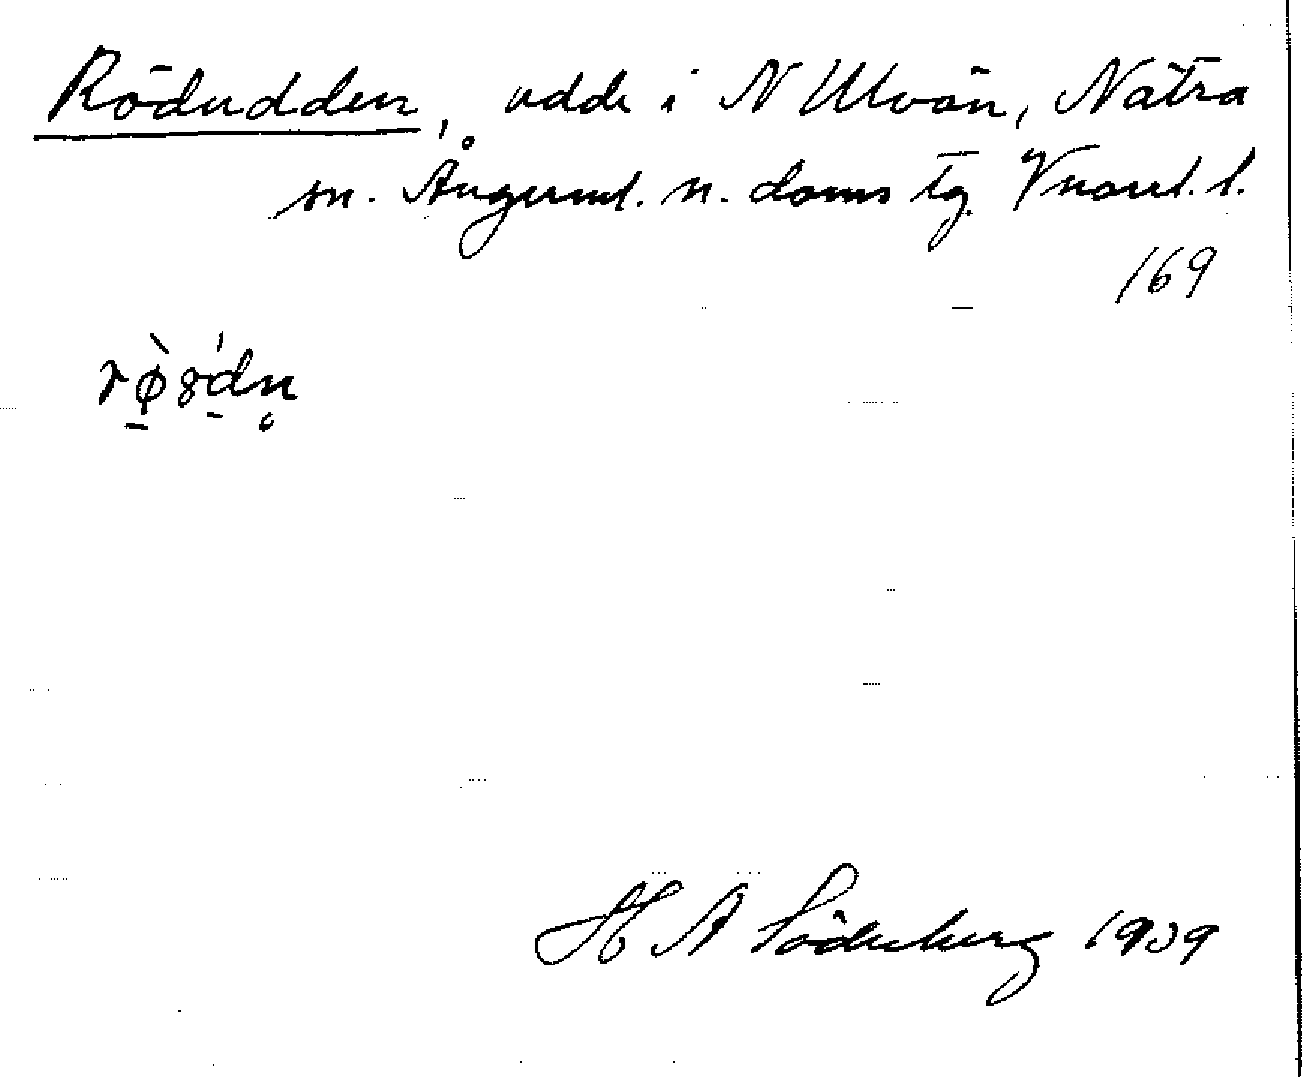 Rödudden, udde i N Ulvön, Nätra
sn. Ångerml. n. doms tg. Vnorrl. l.
169
H A Söderberg 1939